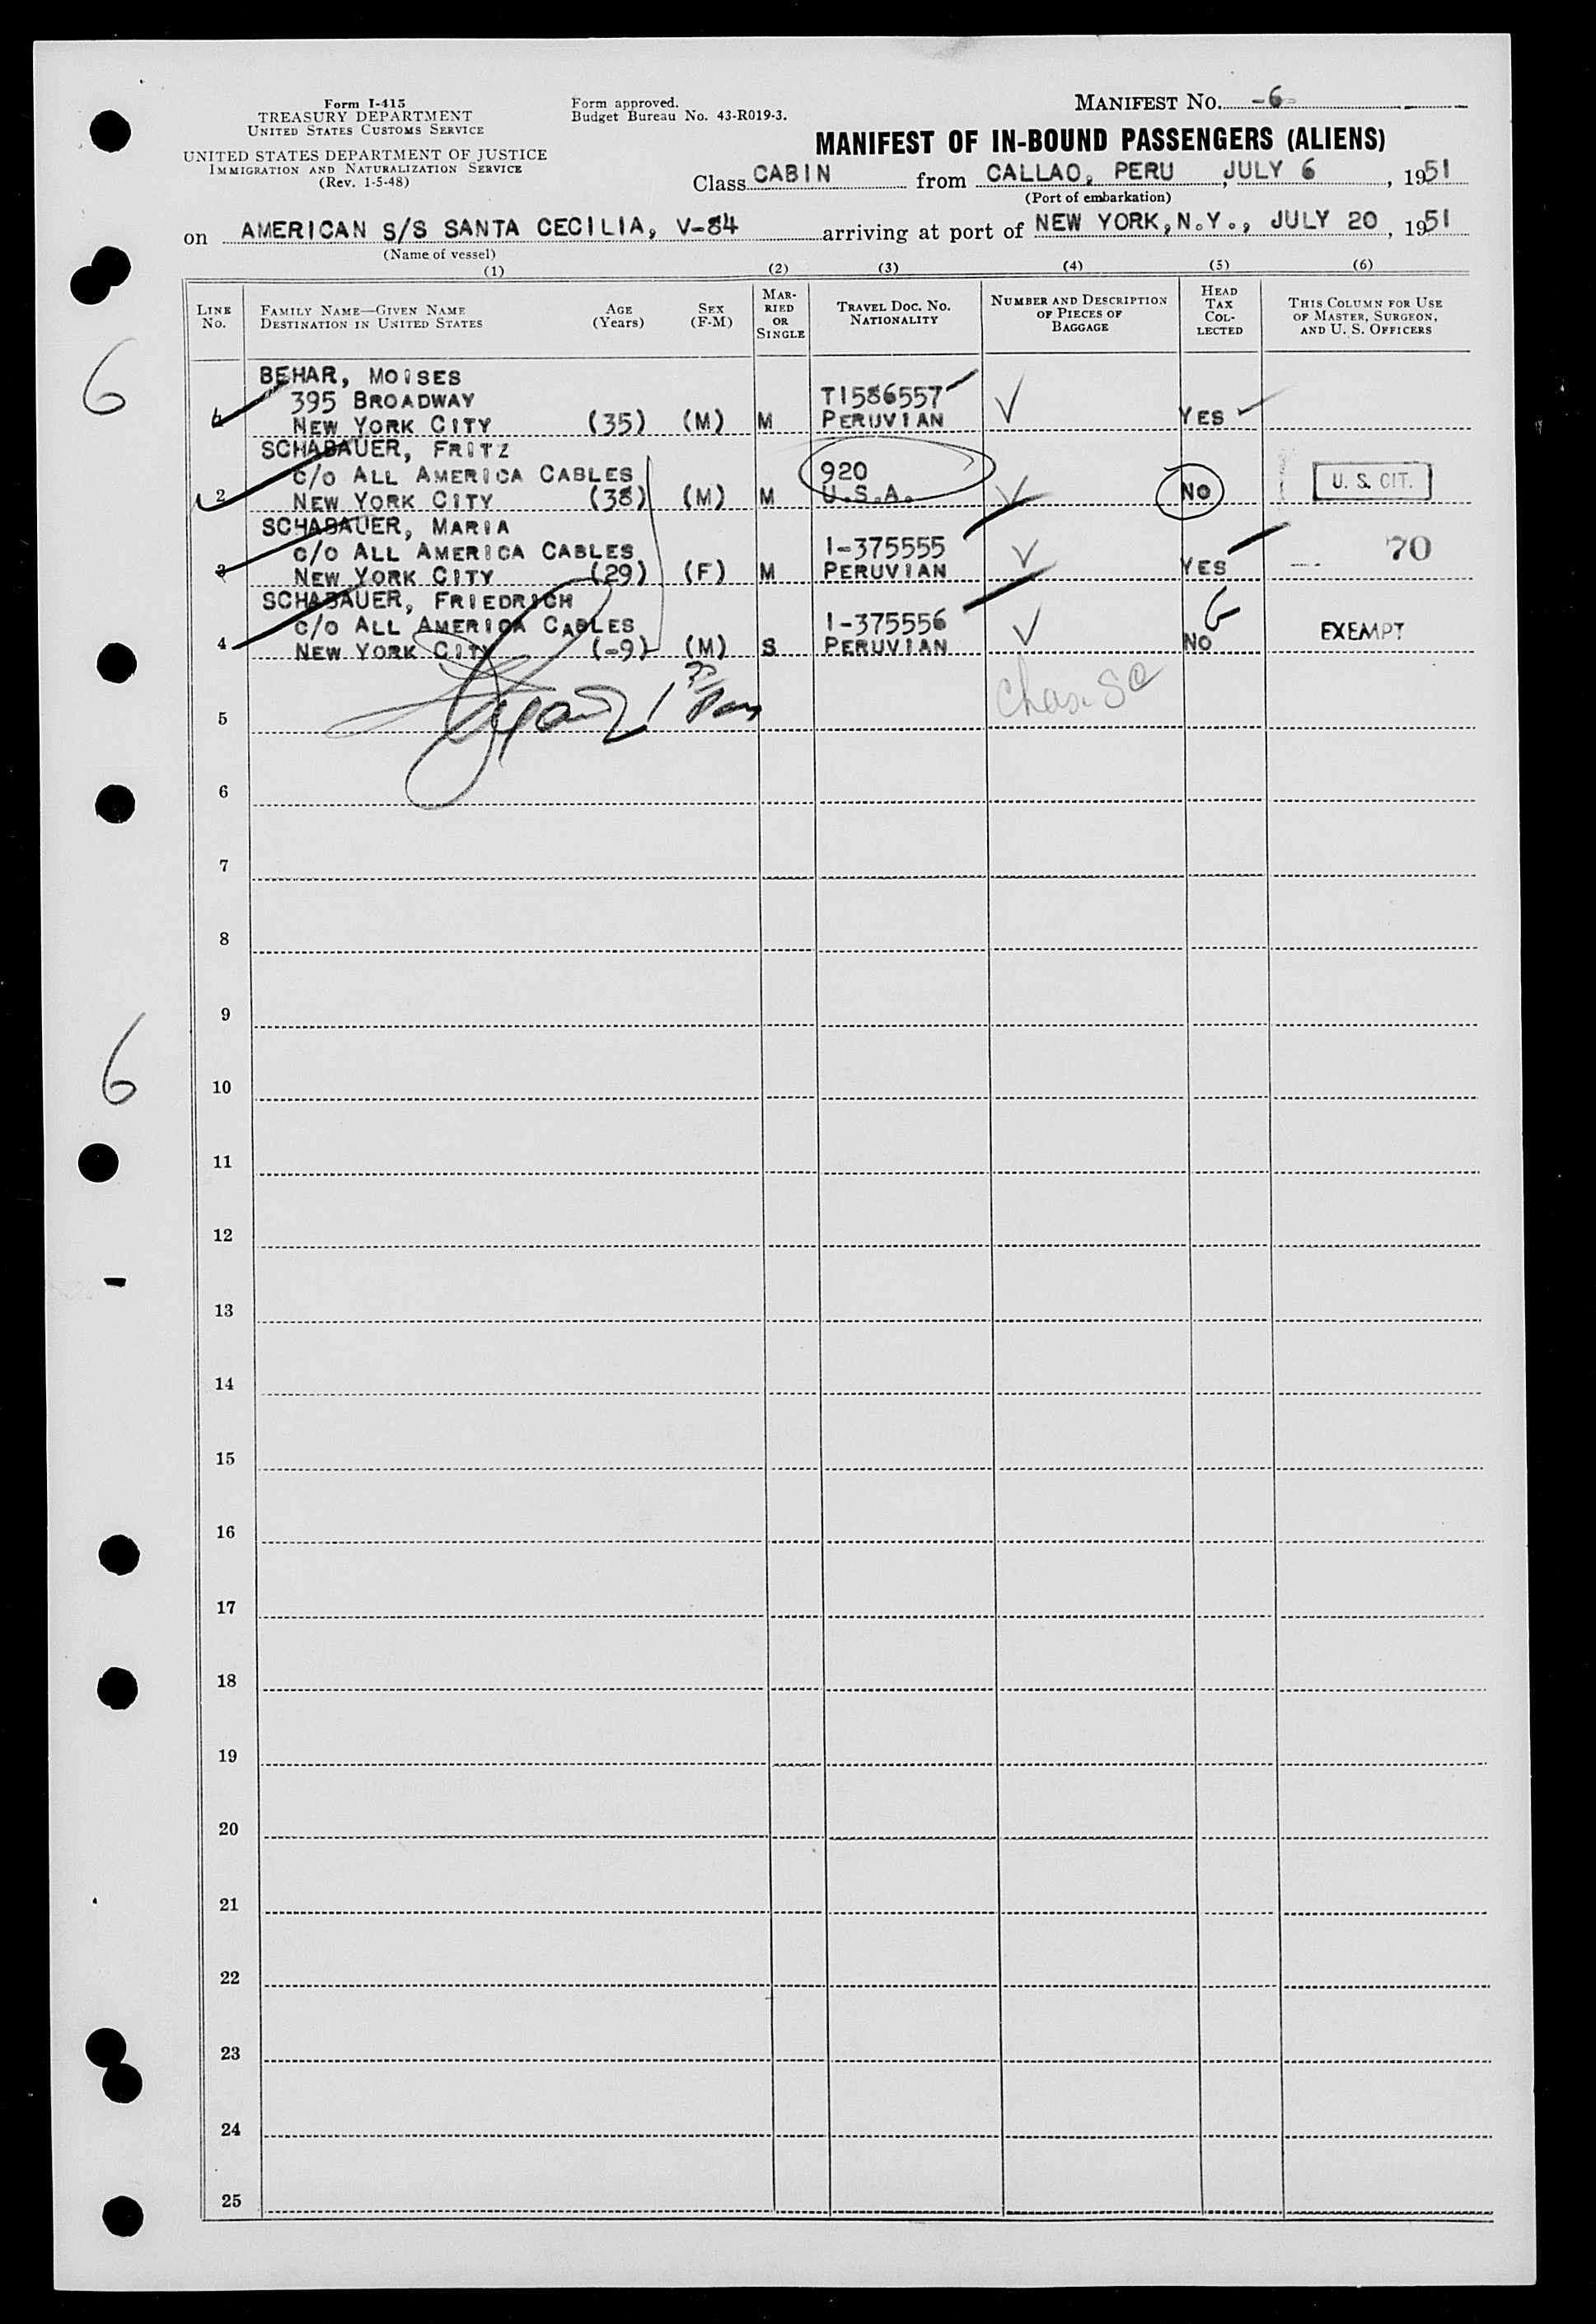 Form I-415
TREASURY DEPARTMENT
UNITED STATES CUSTOMS SERVICE
UNITED STATES DEPARTMENT OF JUSTICE
IMMIGRATION AND NATURALIZATION SERVICE
(Rev. 1-5-48)
Form approved.
Budget Bureau No. 43-R019-3.
MANIFEST No. -6-
MANIFEST OF IN-BOUND PASSENGERS (ALIENS)
Class CABIN from CALLAO, PERU, JULY 6, 1951
(Port of embarkation)
on AMERICAN S/S SANTA CECILIA, V-84 arriving at port of NEW YORK, N.Y., JULY 20, 1951
(Name of vessel)
(1) (2) (3) (4) (5) (6)
LINE No.
FAMILY NAME—GIVEN NAME
DESTINATION IN UNITED STATES
AGE (Years)
SEX (F-M)
MARRIED OR SINGLE
TRAVEL DOC. No.
NATIONALITY
NUMBER AND DESCRIPTION
OF PIECES OF
BAGGAGE
HEAD
TAX
COL-
LECTED
THIS COLUMN FOR USE
OF MASTER, SURGEON,
AND U. S. OFFICERS
6
BEHAR, MOISES
395 BROADWAY T1586557
1 NEW YORK CITY (35) (M) M PERUVIAN √ YES
SCHABAUER, FRITZ
C/O ALL AMERICA CABLES 920
2 NEW YORK CITY (38) (M) M U.S.A. √ NO U. S. CIT.
SCHABAUER, MARIA
C/O ALL AMERICA CABLES 1-375555 70
3 NEW YORK CITY (29) (F) M PERUVIAN √ YES
SCHABAUER, FRIEDRICH
C/O ALL AMERICA CABLES 1-375556 EXEMPT
4 NEW YORK CITY (-9) (M) S PERUVIAN √ NO
5
6
7
8
9
6
10
11
12
13
14
15
16
17
18
19
20
21
22
23
24
25